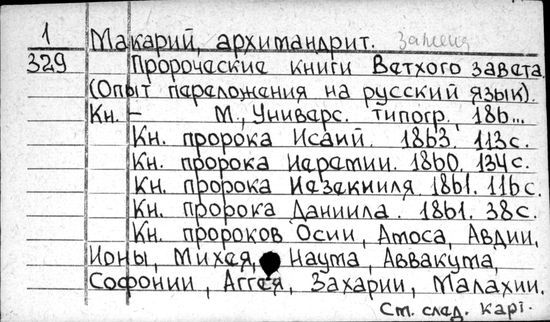 1 Макарий, архимандрит.
329 Пророческие книги Ветхого завета.
(Опыт переложения на русский язык).
Кн. – М., Универс. типогр., 186...
Кн. пророка Исаий. 1863. 113 с.
Кн. пророка Иеремии. 1860. 134 с.
Кн. пророка Иезекииля 1861. 116 с.
Кн. пророка Даниила. 1861. 38 с.
Кн. пророков Осии, Амоса, Авдии,
Ионы, Михея, Наума, Аввакума,
Софонии, Аггея, Захарии, Малахии.
См. след. карт.